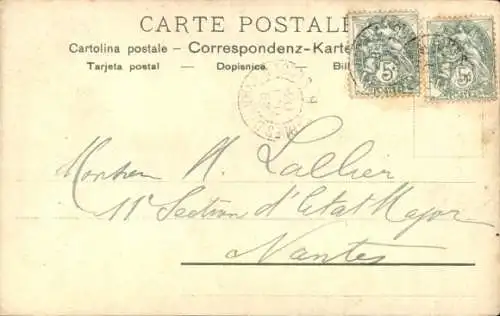 CARTE POSTALE
Cartolina postale – Correspondenz-Karte
Tarjeta postal — Dopisnice. — Bil
5c 5c
Monsieur H. Lallier
11e Section d'Etat Major
Nantes